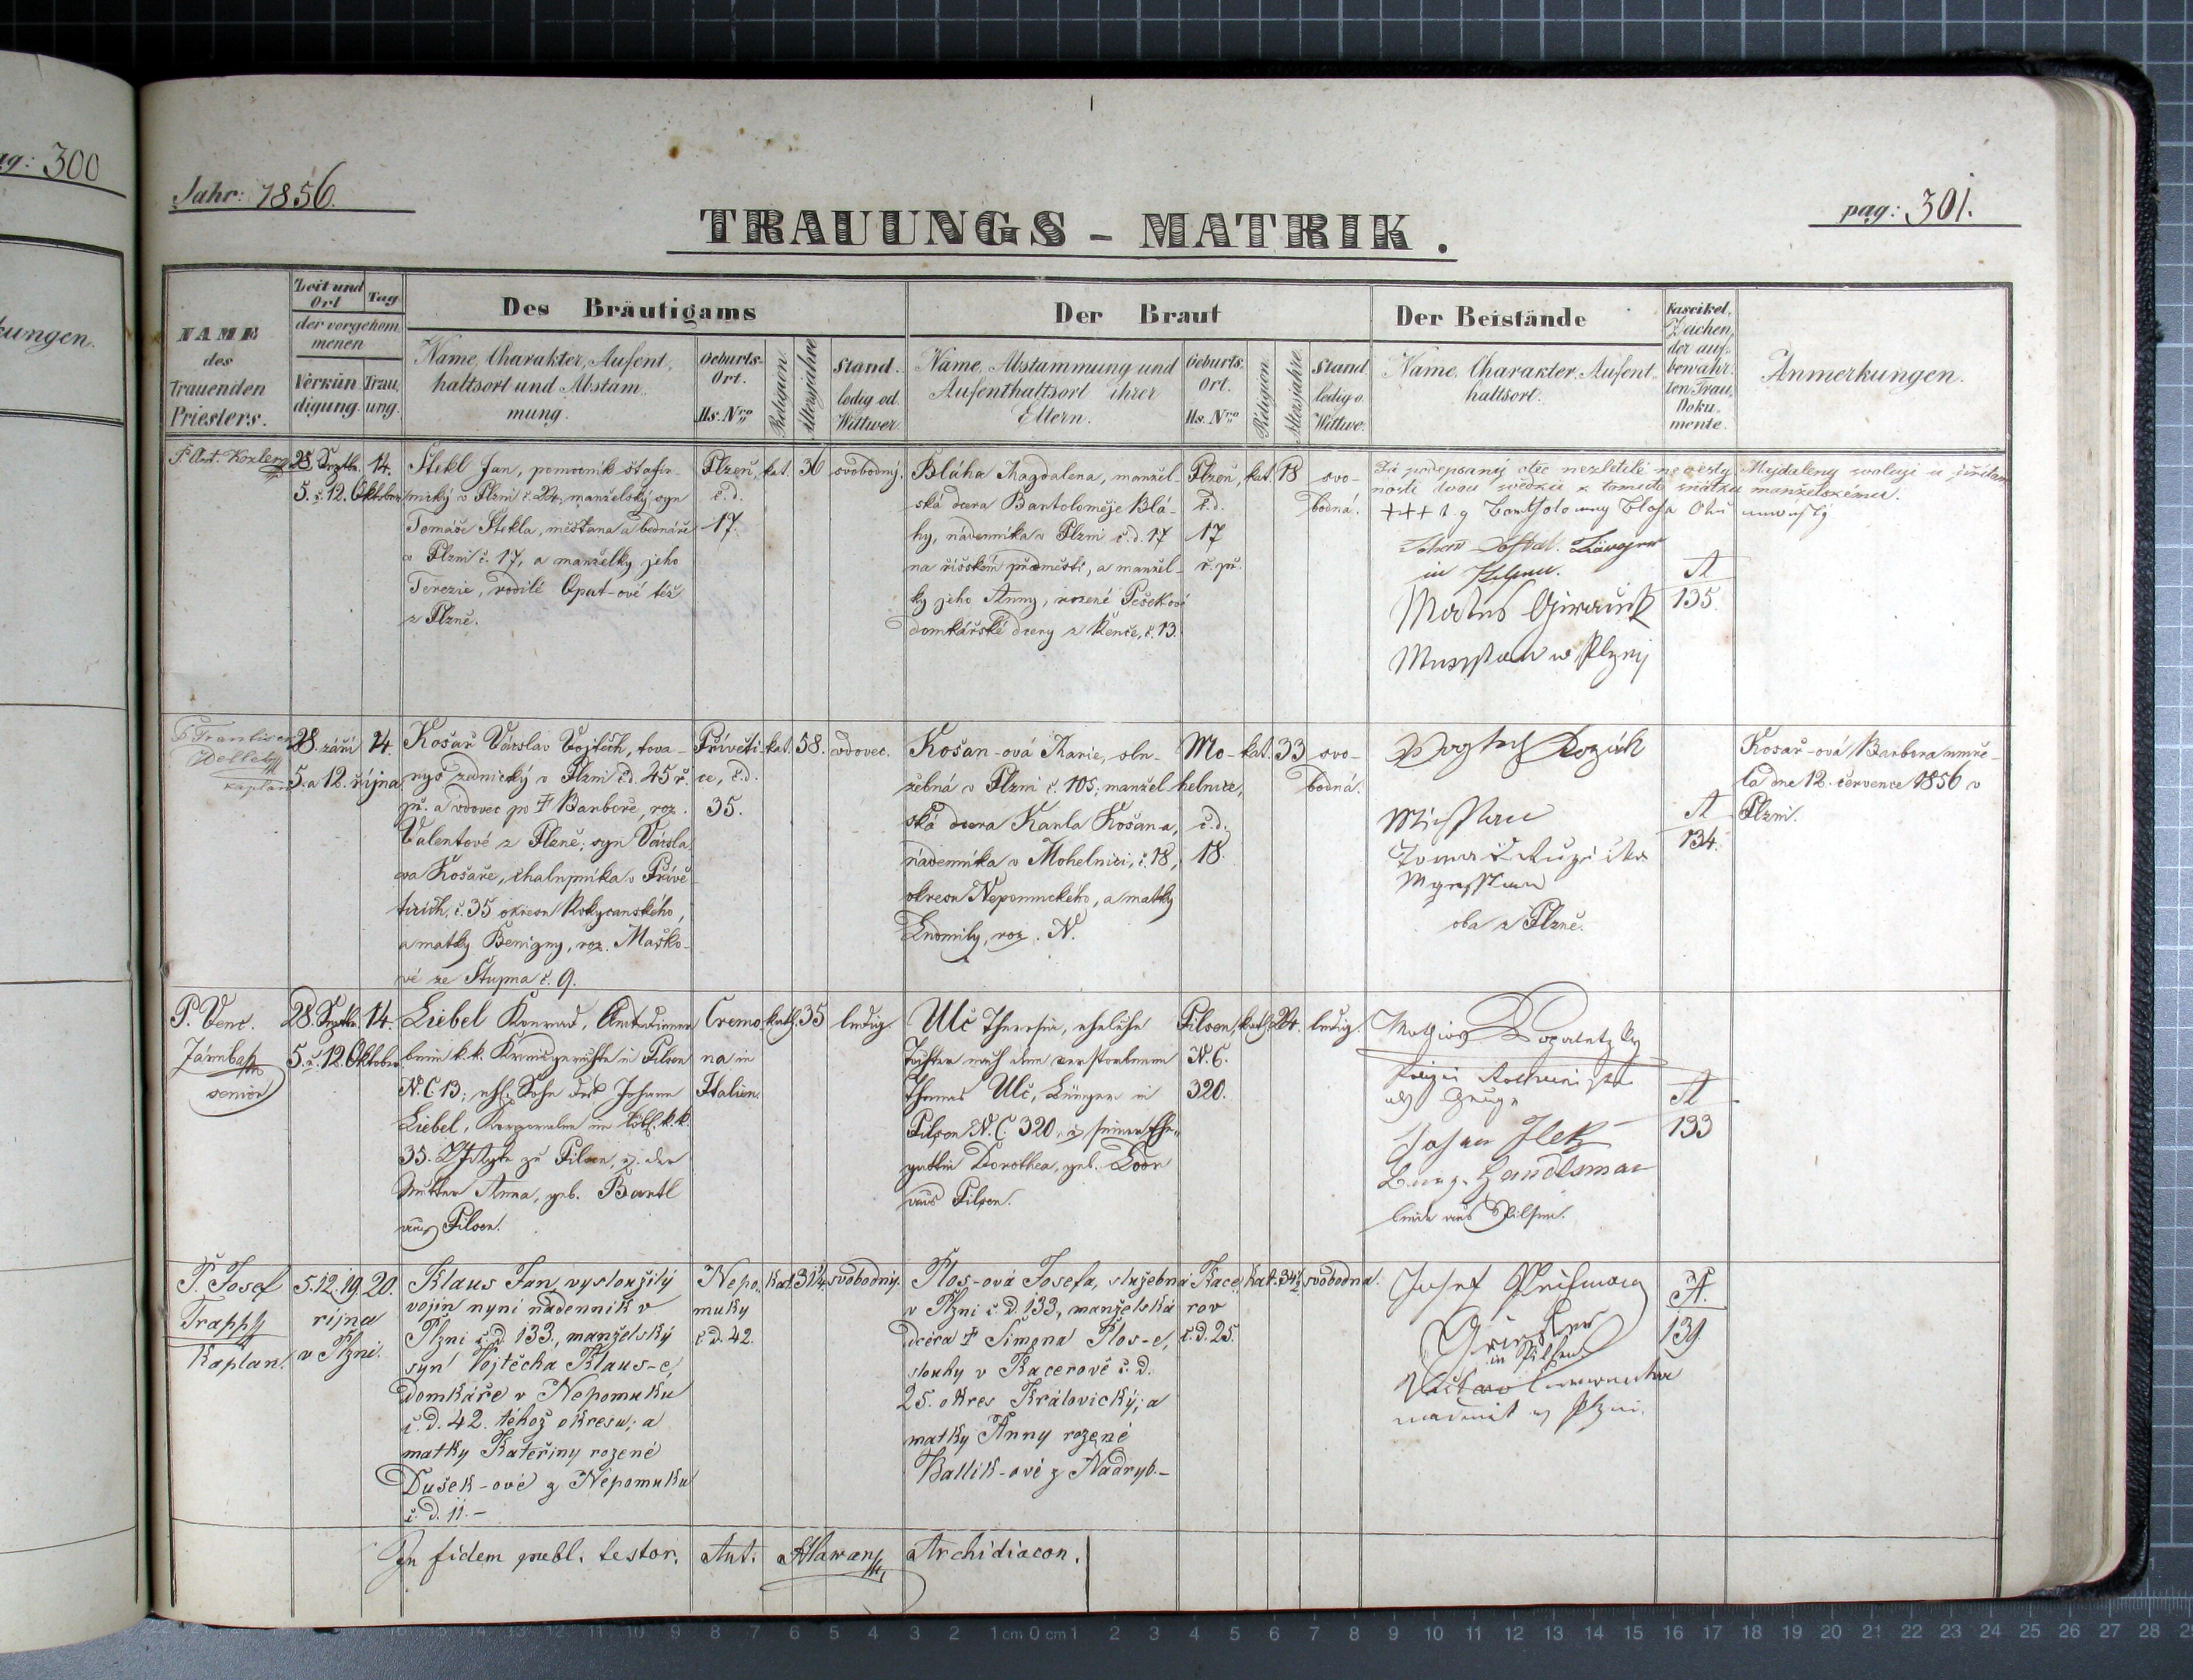 ag: 300
kungen.
Jahr: 1856.
TRAUUNGS - MATRIK.
pag: 301.
NAME
des
Trauenden
Priesters.
Zeit und
Ort
Tag
der vorgenom
menen
Verkün
digung.
Trau,
ung.
Des Bräutigams
Name, Charakter, Aufent,
haltsort und Abstam,
mung.
Geburts-
Ort.
Hs. Nro
Religion.
Altersjahre
Stand.
ledig od.
Wittwer
Der Braut
Name, Abstammung und
Aufenthaltsort ihrer
Eltern.
Geburts,
Ort.
Hs. Nro
Religion.
Altersjahre.
Stand
ledig o.
Wittwe.
Der Beistände
Name, Charakter, Aufent,
haltsort.
Fascikel,
Zeichen,
der auf-
bewahr
ten Trau,
Doku-
mente.
Anmerkungen.
P Ant. Kozler
28. Septb.
5. & 12. Oktober
14.
Štekl Jan, pomocník štafir-
nický v Plzni č. 22, manželský syn
Tomáše Štekla, měšťana a bednáře
v Plzni č. 17, a manželky jeho
Terezie, rodilé Opat-ové též
z Plzně.
Plzeň,
č. d.
17.
kat.
36
svobodný.
Bláha Magdalena, manžel-
ská dcera Bartoloměje Blá-
hy, nádenníka v Plzni č. d. 17
na říšském předměstí, a manžel-
ky jeho Anny, rozené Pešekové
domkářské dcery z Řenče, č. 13.
Plzeň,
č. d.
17
ř. př.
kat.
18
svo-
bodná.
Já podepsaný otec nezletilé nevěsty Majdaleny svoluji u přítom
nosti dvou svědků k tomuto sňatku manželskému.
+++
in Pilsen.
w Plznj
A
135.
P František
kaplan
28. září
5. a 12. října
14.
Kosař Václav Vojtěch, tova-
ryš zednický v Plzni č. d. 45 ř.
př. a vdovec po † Barboře, roz.
Valentové z Plzně; syn Václa-
va Kosaře, chalupníka v Přívě-
ticích, č. 35 okresu Rokycanského,
a matky Benigny, roz. Maško-
vé ze Stupna č. 9.
Přívěti-
ce, č. d.
35.
kat.
58.
vdovec.
Košan-ová Marie, slu-
žebná v Plzni č. 105; manžel-
ská dcera Karla Košan-a,
nádenníka v Mohelnici, č. 18,
okresu Nepomuckého, a matky
Ludmily, roz. N.
Mo-
helnice,
č. d.
18.
kat.
33
svo-
bodná.
oba z Plzně.
A
134.
Kosař-ová Barbora umře-
la dne 12. července 1856 v
Plzni.
P. Venc.
Jámbah
senior
28. Septb.
5. & 12. Oktober
14.
Liebel Konrad, Amtsdiener
beim k. k. Kreisgerichte in Pilsen
N. C 13; ehl. Sohn des Johann
Liebel, Korporalen im löbl. k. k.
35. zu Pilsen, u. der
Mutter Anna, geb. Bartl
aus Pilsen.
Cremo,
na in
Italien.
kath.
35
ledig.
Ulč Theresia, eheliche
Tochter nach dem verstorbenen
Thomas Ulč, Bürger in
Pilsen N. C. 320, u. seiner Ehe-
gattin Dorothea, geb. Loor
aus Pilsen.
Pilsen,
N. C.
320.
kath.
24.
ledig.
als Zeuge
Handelsman
beide aus Pilsen.
A
133
P. Josef
Trappl
Kaplan.
5. 12. 19.
října
v Plzni.
20.
Klaus Jan, vysloužilý
vojín nyní nádenník v
Plzni č. d 133., manželský
syn Vojtěcha Klaus-e,
domkáře v Nepomuku
č. d. 42. téhož okresu; a
matky Kateřiny rozené
Dušek-ové z Nepomuku
č. d. 11.-
Nepo,
muky
č d. 42.
Kat.
31¼
svobodný.
Plos-ová Josefa, služebná
v Plzni č. d. 133, manželská
dcera † Šimona Plos-e,
slouhy v Kacerově č. d.
25. okres Královický; a
matky Anny rozené
Ballik-ové z Nadryb.-
Kace,
rov
č. d. 25.
Kat.
34½
svobodna.
Josef
in Pilsen
w Plzni.
A.
139
In fidem publ. testor. Ant. Hlawan Archidiacon.